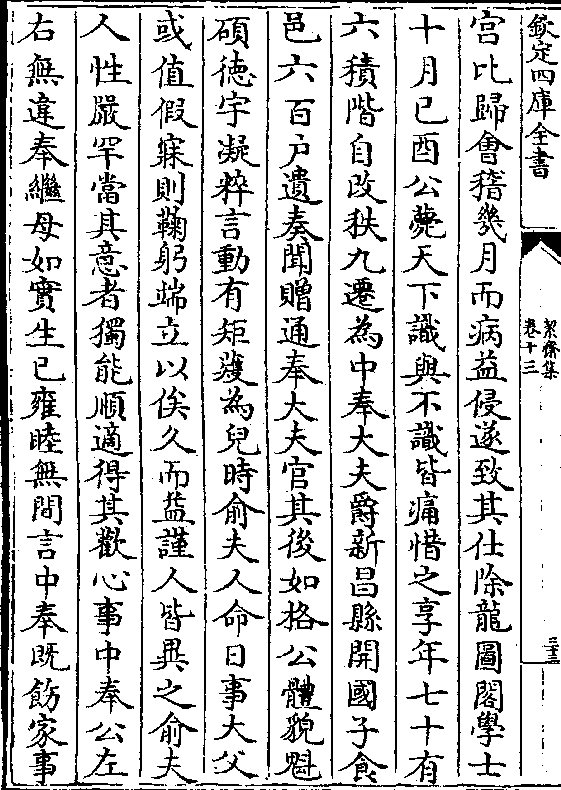 欽定四庫全書
絜齋集
卷十三
三十三
宫比歸會稽幾月而病益侵遂致其仕除龍圖閣學士
十月己酉公薨天下識與不識皆痛惜之享年七十有
六積階自改秩九遷為中奉大夫爵新昌縣開國子食
邑六百户遺奏聞贈通奉大夫官其後如格公體貌魁
碩德宇凝粹言動有矩矱為兒時俞夫人命日事大父
或值假寐則鞠躬端立以俟久而益謹人皆異之俞夫
人性嚴罕當其意者獨能順適得其歡心事中奉公左
右無違奉繼母如實生已雍睦無間言中奉既飭家事